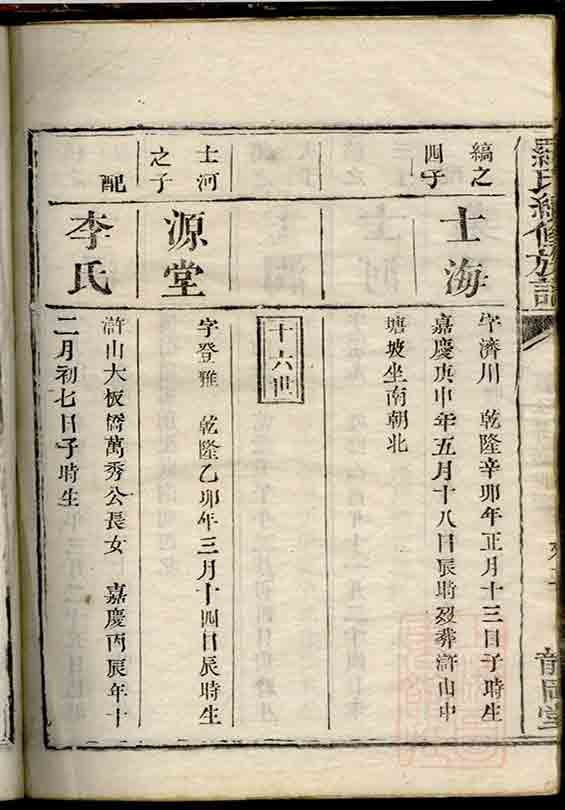 羅氏續修族譜
縞之
四子
士海
字濟川　乾隆辛卯年正月十三日子時生
嘉慶庚申年五月十八日辰時歿葬滸山中
塘坡坐南朝北
十六世
士河
之子
源堂
字登雅　乾隆乙卯年三月十四日辰時生
配
李氏
滸山大板橋萬秀公長女　嘉慶丙辰年十
二月初七日子時生